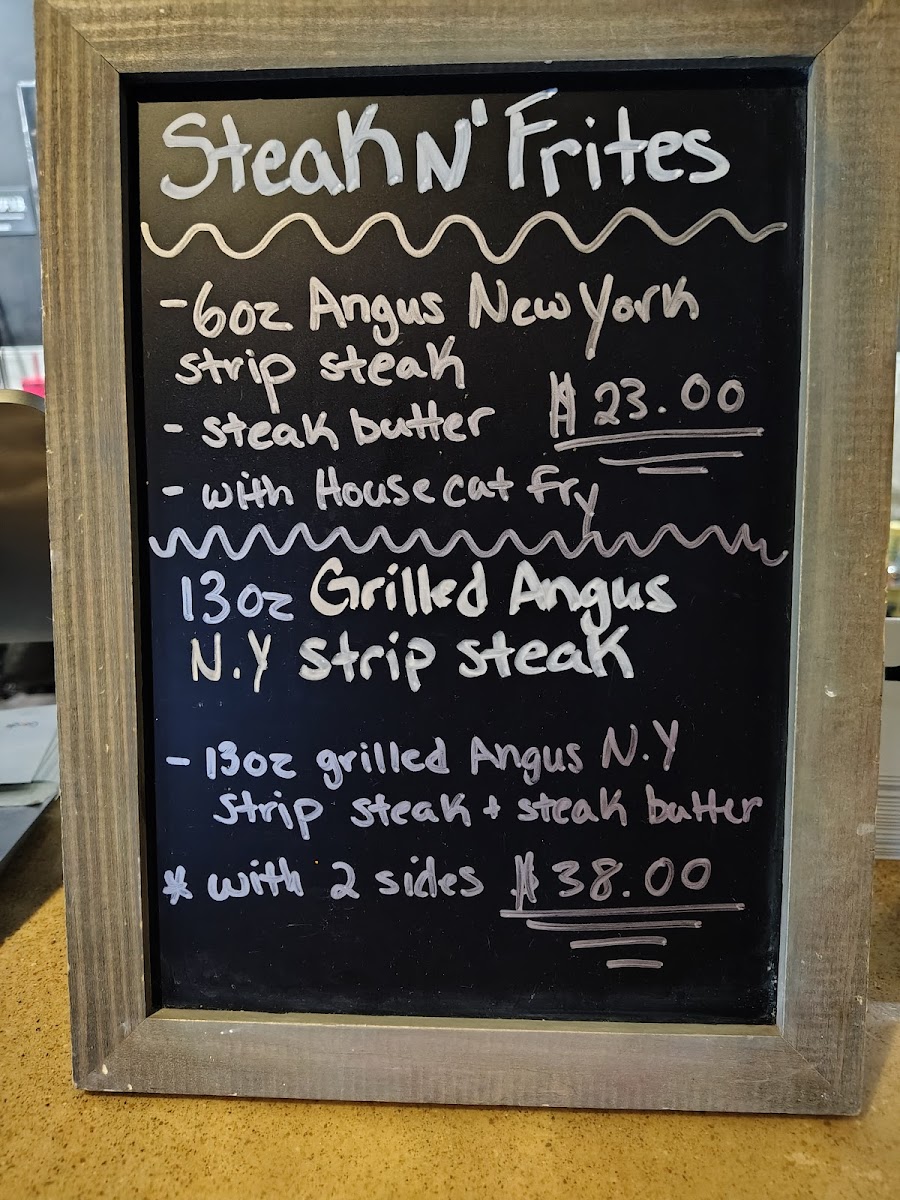 Steak N' Frites
- 6oz Angus New York
strip steak
- steak butter $ 23.00
- with House cat fry
13oz Grilled Angus
N.Y strip steak
- 13oz grilled Angus N.Y
strip steak + steak butter
* with 2 sides $ 38.00
Google